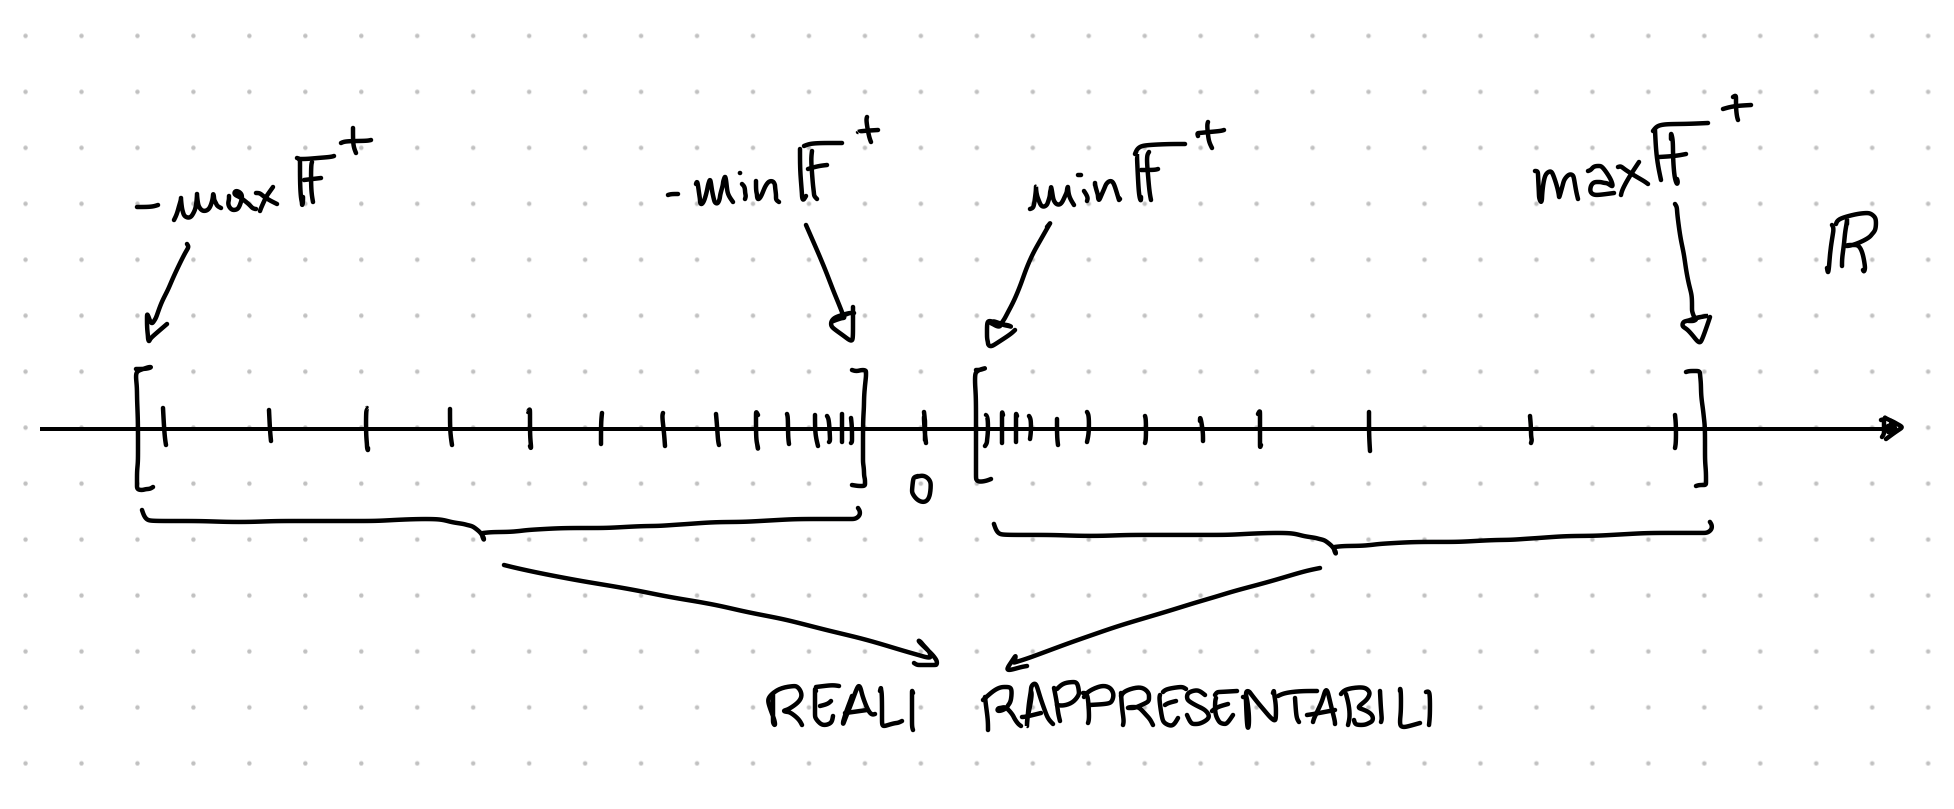 -max 𝔽⁺ -min 𝔽⁺ min 𝔽⁺ max 𝔽⁺
ℝ
0
REALI RAPPRESENTABILI